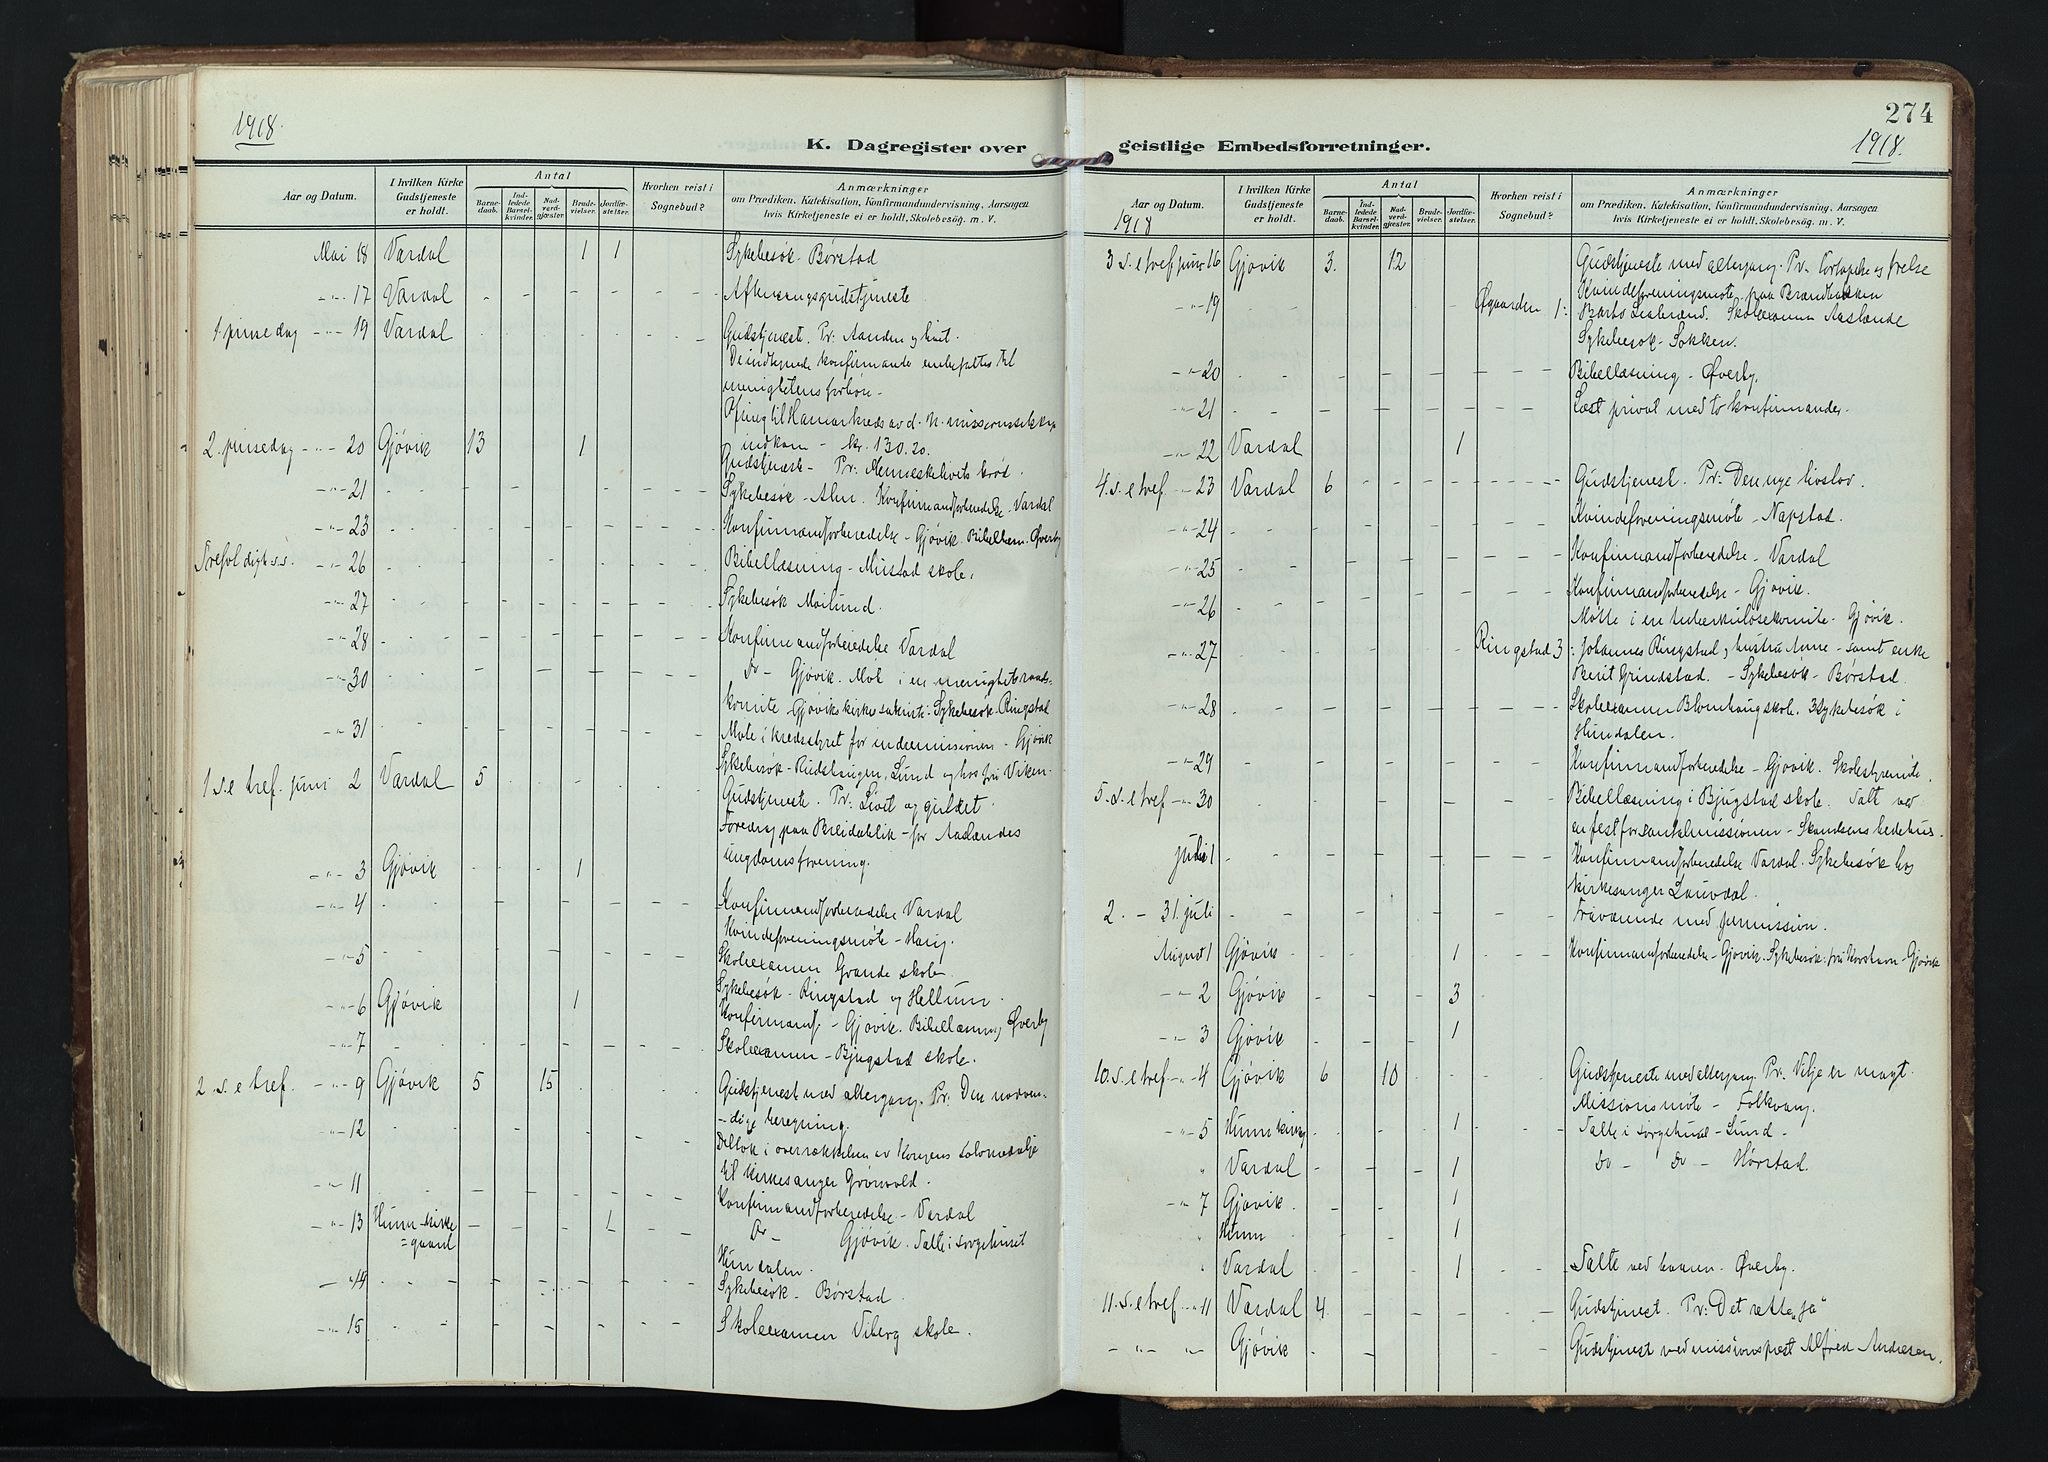 1918.
K. Dagregister over
Aar og Datum.
I hvilken Kirke Gudstjeneste er holdt.
Antal
Barnedaab. Indledede Barselkvinder. Nadverdgjæster. Brudevielser. Jordfæstelser.
Hvorhen reist i Sognebud?
Anmærkninger
om Prædiken, Katekisation, Konfirmandundervisning, Aarsagen
hvis Kirketjeneste ei er holdt, Skolebesøg. m. V.
Mai 18 Vardal 1 1 Sykebesøk - Børstad
-"- 17 Vardal Aftensangsgudstjeneste
1 pinsedag -"- 19 Vardal Gudstjeneste. Pr: Aanden og livet.
De indtegnede konfirmanter anbefaltes til
menighetens forbøn -
Ofring til Hamar kreds av d. n. missionsselskap
indkom - kr. 130.20.
2. pinsedag -"- 20 Gjøvik 13 1 Gudstjeneste - Pr: Menneskelivets brød.
-"- 21 Sykebesøk - Alm. Konfirmandforberedelse - Vardal
-"- 23 Konfirmandforberedelse - Gjøvik. Bibellæsn. Øverby
Trefoldigh.s.s. -"- 26 Bibellæsning - Mustad skole.
-"- 27 Sykebesøk Moilund.
-"- 28 Konfirmandforberedelse Vardal
-"- 30 Do - Gjøvik. Møte i en menighetsraads-
komite - Gjøviks kirkesakristi: Sykebesøk - Ringstad
-"- 31 Møte i kredsstyret for indremissionen - Gjøvik
Sykebesøk - Rudshaugen, Lund og hos fru Viken.
1 s. e tref. juni 2 Vardal 5 Gudstjeneste. Pr: Livet og guldet.
Foredrag paa Breidablik - for Aaslandes
ungdomsforening.
-"- 3 Gjøvik 1
-"- 4 Konfirmandforberedelse Vardal
Kvindeforeningsmøte - Haug.
-"- 5 Skoleexamen Grande skole.
-"- 6 Gjøvik 1 Sykebesøk - Ringstad og Hellum.
Konfirmandf. - Gjøvik. Bibellæsning Øverby
-"- 7 Skoleexamen - Bjugstad skole.
2 s. e tref. -"- 9 Gjøvik 5 15 Gudstjenest med altergang. Pr: Den nødven-
-dige beregning.
-"- 12 Deltok i overrækkelsen av Kongens sølvmedalje
til Kirkesanger Grønvold.
-"- 11 Konfirmandforberedelse - Vardal
-"- 13 Hunn kirke=gaard 1 Do - Gjøvik. Talte i sørgehuset
Hundalen.
-"- 14 Sykebesøk - Børstad.
-"- 15 Skoleexamen Viberg skole.
274
1918.
geistlige Embedsforretninger.
Aar og Datum.
1918
I hvilken Kirke Gudstjeneste er holdt.
Antal
Barnedaab. Indledede Barselkvinder. Nadverdgjæster. Brudevielser. Jordfæstelser.
Hvorhen reist i Sognebud?
Anmærkninger
om Prædiken, Katekisation, Konfirmandundervisning, Aarsagen
hvis Kirketjeneste ei er holdt, Skolebesøg. m. V.
3 s. e tref juni 16 Gjøvik 3. 12 Gudstjeneste med altergang. Pr. Fortapelse og frelse
Kvindeforeningsmøte paa Brandbakken
-"- 19 Øgaarden 1: Skoleexamen Aaslande
Sykebesøk - Sokken.
-"- 20 Bibellæsning - Øverby.
-"- 21 Læst privat med to konfirmander.
-"- 22 Vardal 1
4. s. e tref -"- 23 Vardal 6 Gudstjenest. Pr: Den nye livslov.
-"- 24 Kvindeforeningsmøte - Napstad.
-"- 25 Konfirmandforberedelse - Vardal
-"- 26 Konfirmandforberedelse - Gjøvik.
Møtte i en tuberkulosekomite - Gjøvik.
-"- 27 Ringstad 3: Johannes Ringstad og hustru Anne - samt enke
Berit Grindstad. - Sykebesøk - Børstad.
-"- 28 Skoleexamen Blomhaug skole. 3 Sykebesøk i
Hundalen.
-"- 29 Konfirmandforberedelse - Gjøvik. Skolestyremøte.
5. s. e tref -"- 30 Bibellæsning i Bjugstad skole. Talt ved
en fest for santalmissionen - Skandsens bedehus.
juli 1 Konfirmandforberedelse Vardal. Sykebesøk hos
kirkesanger Lauvdal.
2. - 31. juli Fraværende med permission.
August 1 Gjøvik 1 Konfirmandforberedelse - Gjøvik. Sykebesøk: fru Korstvan - Gjøvik
-"- 2 Gjøvik 3
-"- 3 Gjøvik 1
10. s. e tref -"- 4 Gjøvik 6 10 Gudstjeneste med altergang. Pr. Vilje er magt.
Missionsmøte - Folkvang.
-"- 5 Hunn kirkeg 1 Talte i sørgehuset - Lund -
" Vardal 1 Do - Do - Hørstad.
-"- 7 Gjøvik 1
" Hunn 1
" Vardal 1 Talte ved baaren - Øverby.
11. s. e tref -"- 11 Vardal 4. Gudstjenest. Pr: Det rette "ja"
-"- "- Gjøvik Gudstjenest ved missionsprest Alfred Andresen.